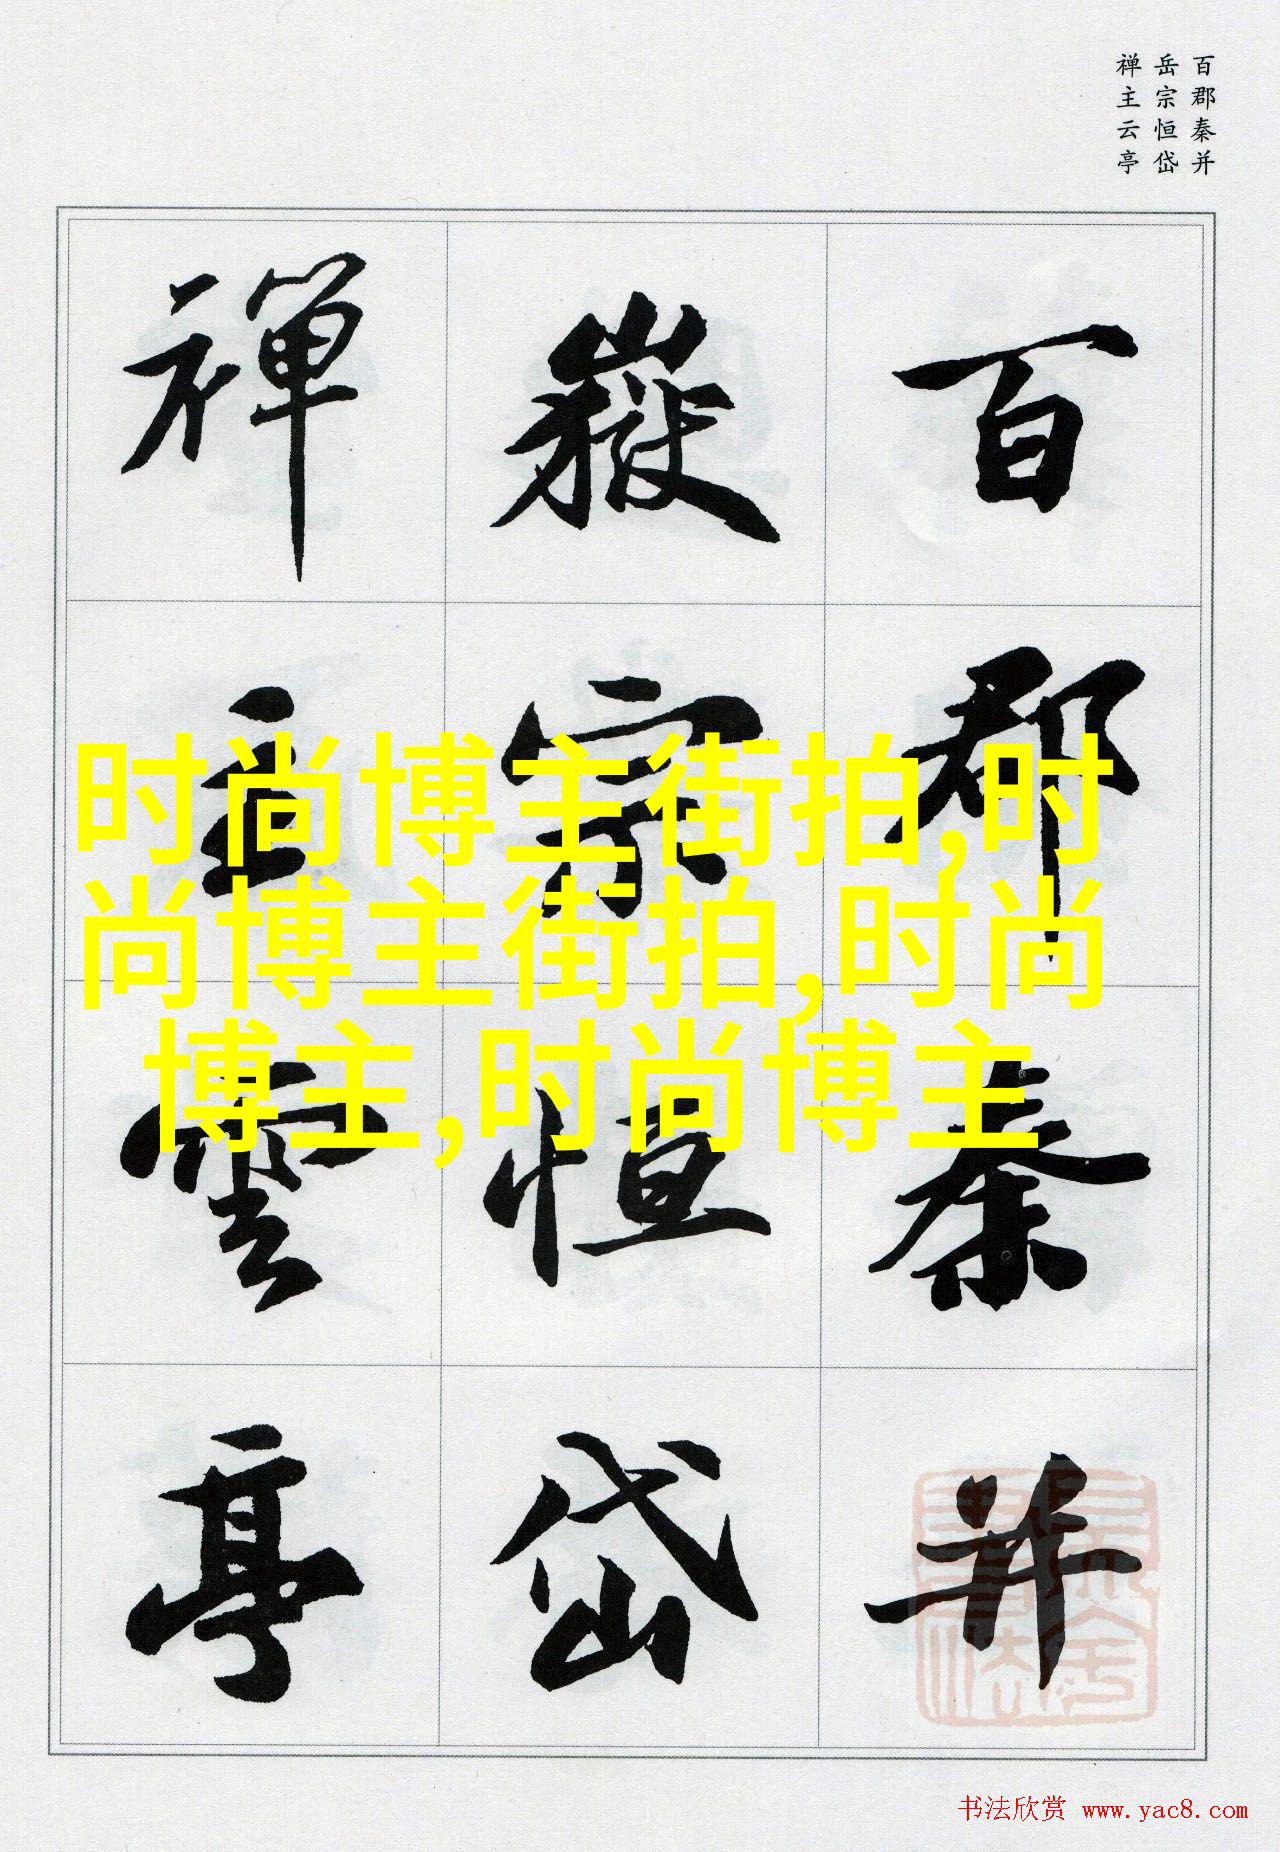 百郡秦并
岳宗恒岱
禅主云亭
百郡秦并
嶽宗恒岱
禅主雲亭
时尚博主街拍,时
尚博主街拍,时尚
博主,时尚博主
书法欣赏 www.yac8.com